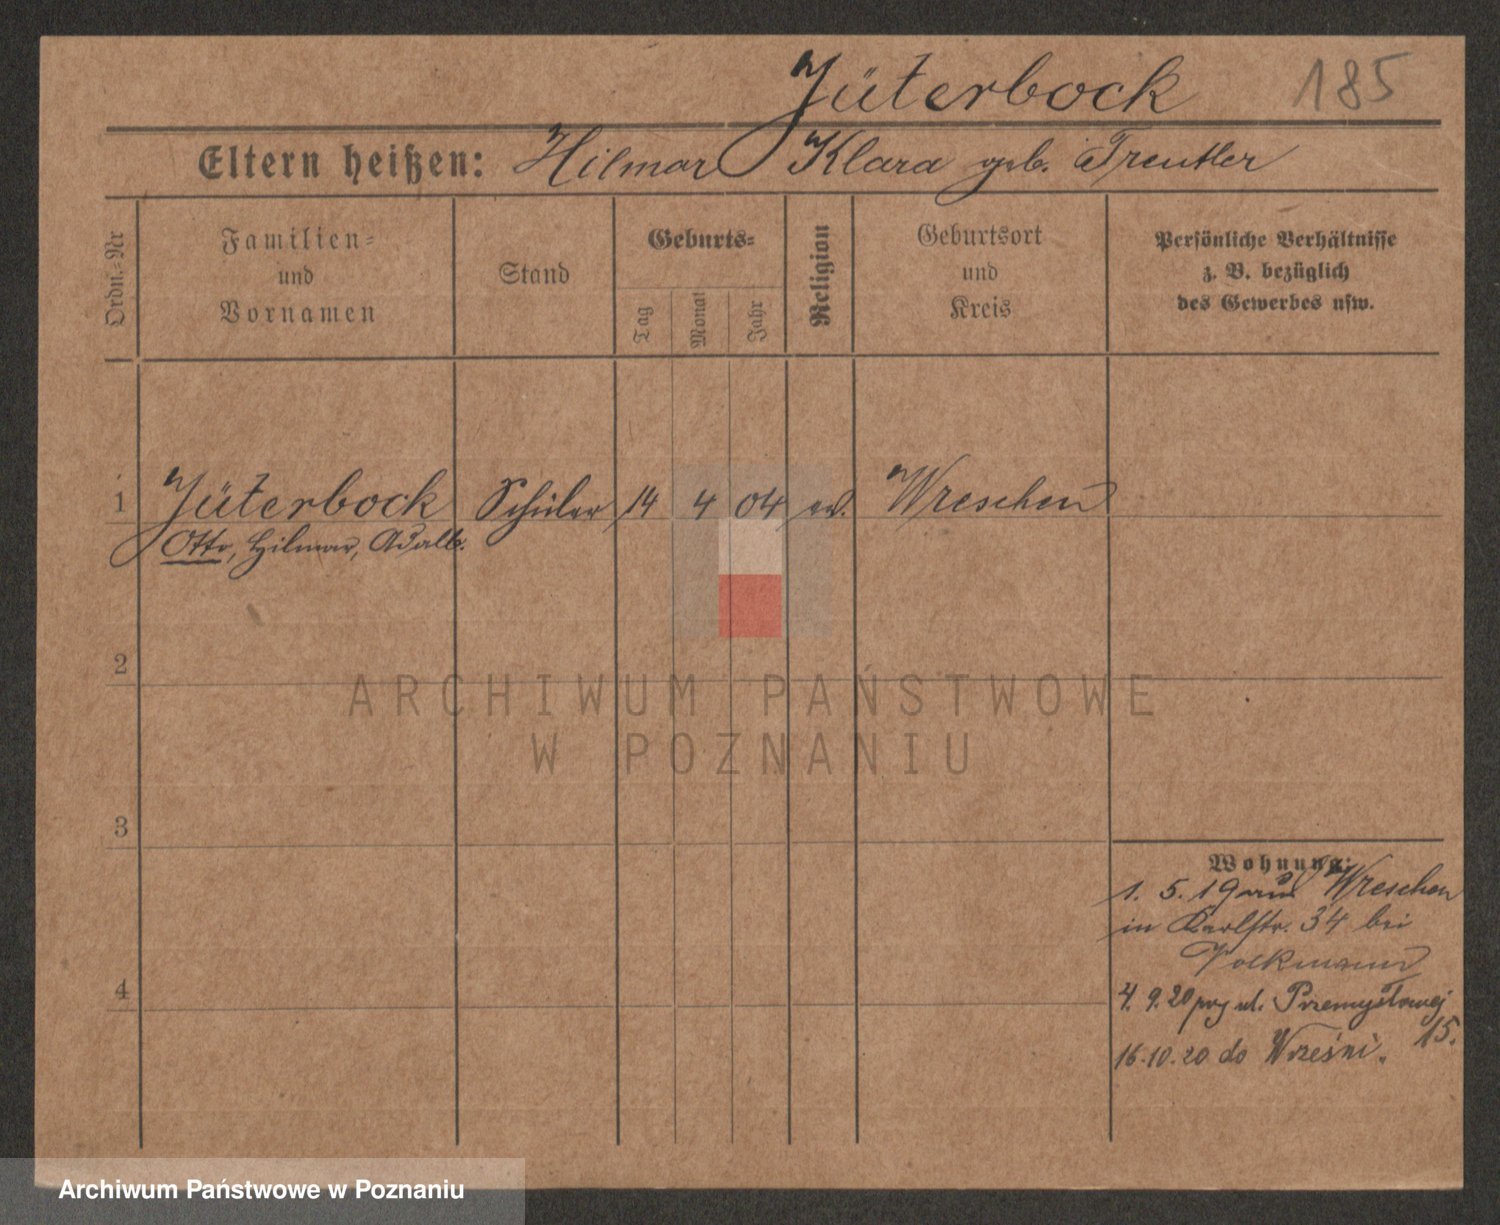 Jüterbock 185
Eltern heißen: Hilmar Klara geb. Treutler
Ordn.-Nr
Familien-
und
Vornamen
Stand
Geburts-
Tag
Monat
Jahr
Religion
Geburtsort
und
Kreis
Persönliche Verhältnisse
z. B. bezüglich
des Gewerbes usw.
1 Jüterbock Schüler 14 4 04 ev. Wreschen
Otto, Hilmar, Adalb.
2
3
4
Wohnung:
1. 5. 19 aus Wreschen
in Karlstr. 34 bei
Volkmann
4. 9. 20 przy ul. Przemysłowej
15.
16.10.20 do Wrześni.
ARCHIWUM PAŃSTWOWE
W POZNANIU
Archiwum Państwowe w Poznaniu